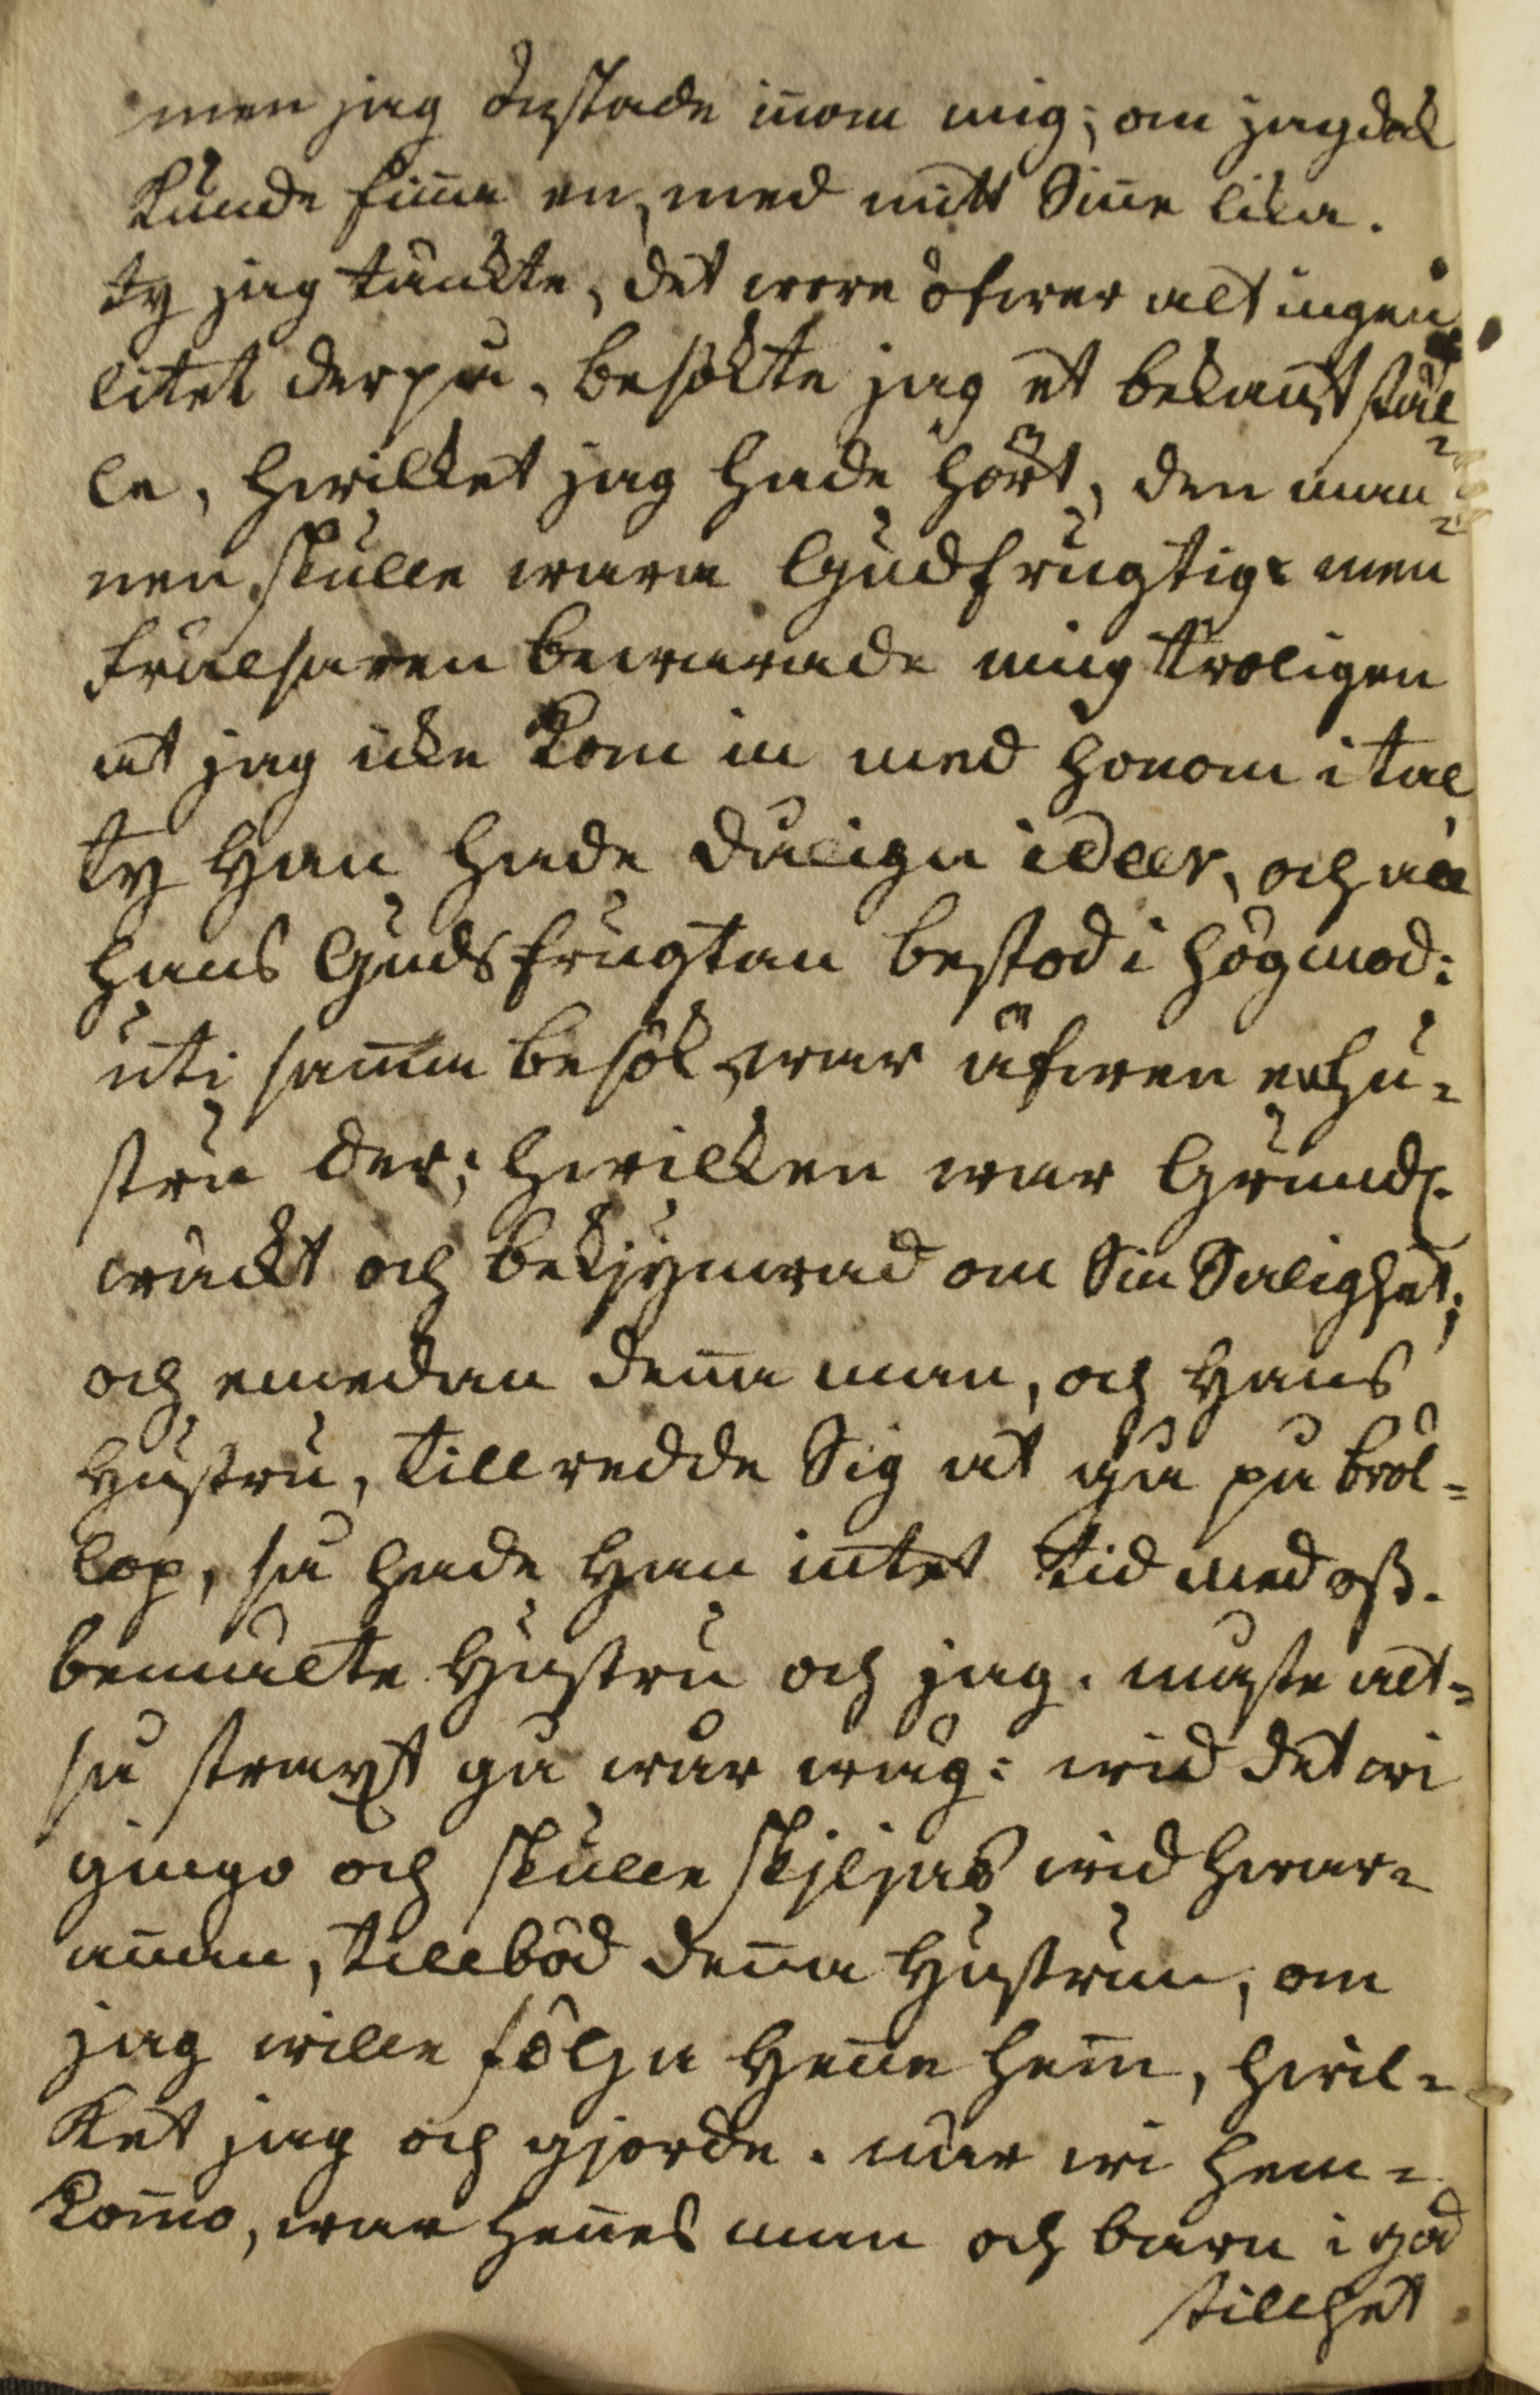 men jag trystade inom mig; om jag dok
kunde finna en, med mitt Sinne lika.
ty jag tänkte, det wore öfwer alt ingen.
litet derpå, besökte jag et bekant stäl
le, hwilket jag hade hört, den man=
nen skulle wara Gudfrugtig: men
frälsaren bewarade mig troligen
at jag icke kom in med honom i tal
ty Han hade dålige ideer, och all
hans Gudsfrugtan bestod i högmod:
uti samma besök, war äfwen en hu=
stru der; hwilken war Grund=
wäckt och bekymrad om Sin Salighet;
och emedan denna man, och Hans
Hustru, tillredde Sig at gå på bröl=
lop, så hade Han intet tid med oss.
bemälte Hustru och jag. måste alt=
så straxt gå wår wäg: wid det wi
gingo och skulle skjljas wid hwar=
annan, tillböd denna Hustrun, om
jag wille följa Henne hem, hwil=
ket jag och gjorde. när wi hem=
kommo, war hennes man och barn i god
stillhet